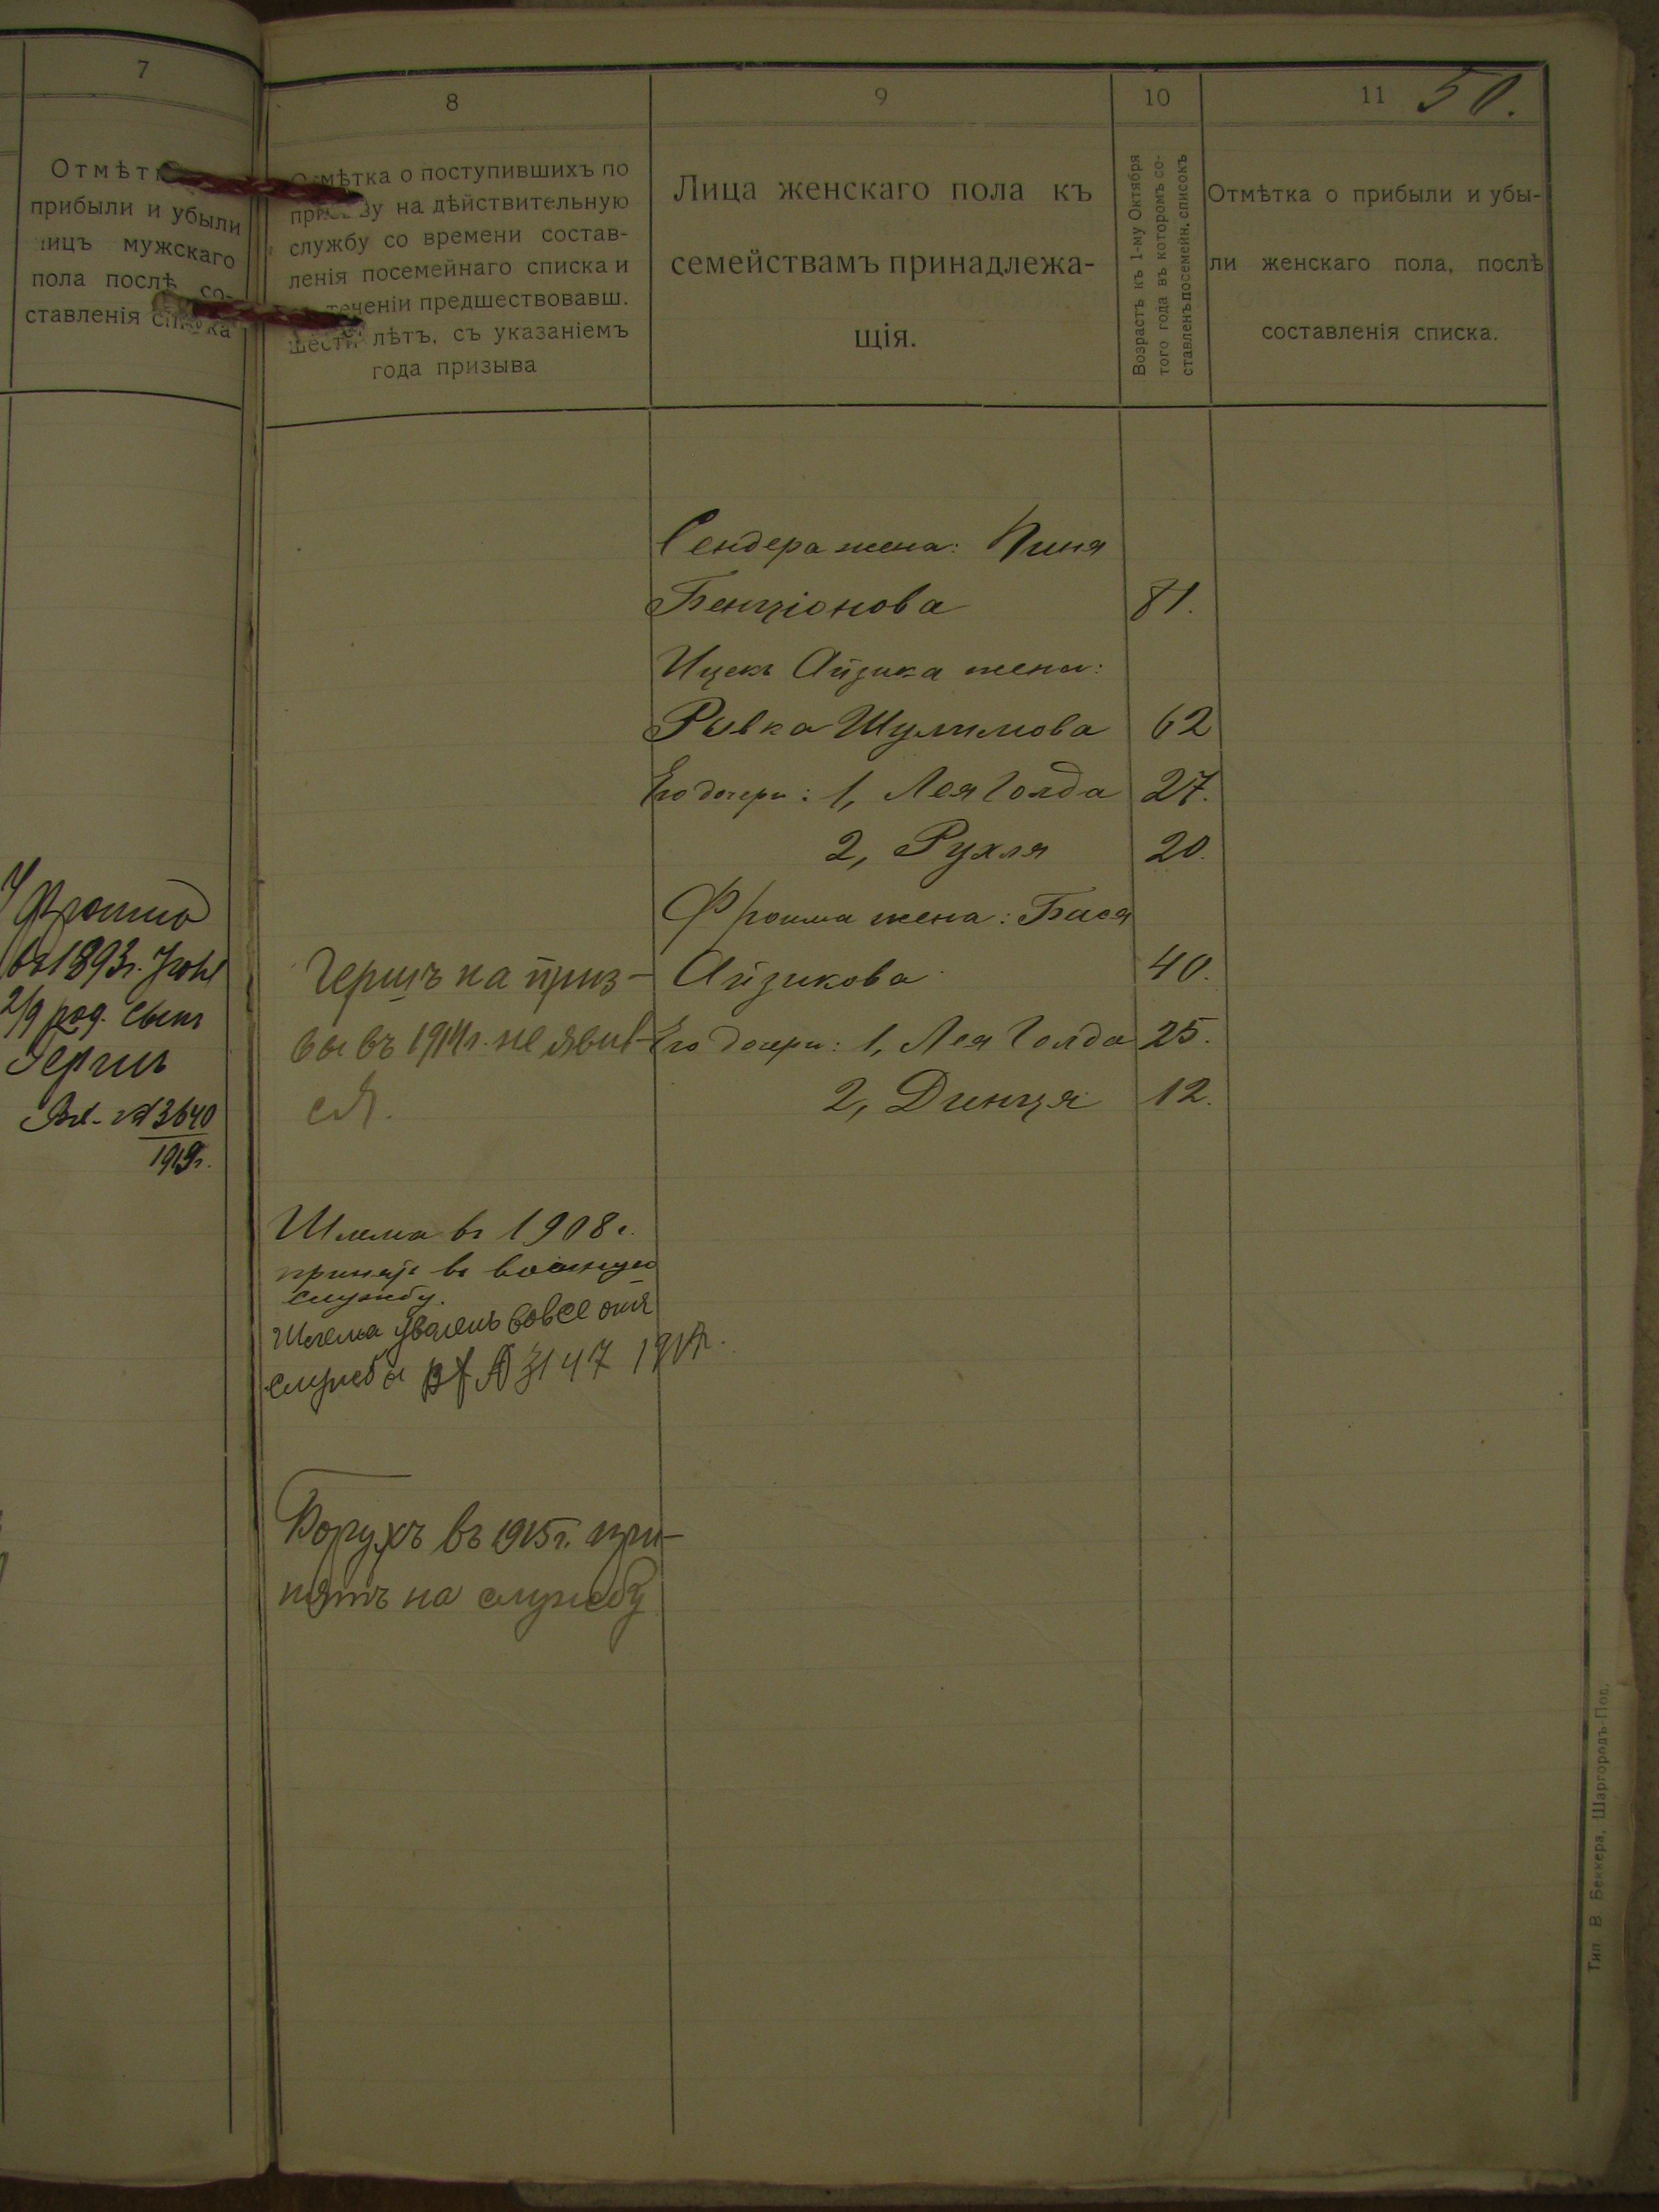 7
Отмѣт
прибыли и убыли
лицъ мужскаго
пола послѣ со-
ставленія списка
У Фроима
въ 1893г. Іюня
2/9 род. сынъ
Гершъ
Вх. № 3640
1919г.
8
Отмѣтка о поступившихъ по
призыву на дѣйствительную
службу со времени состав-
ленія посемейнаго списка и
теченіи предшествовавш.
шести лѣтъ, съ указаніемъ
года призыва
Гершъ на приз-
вы въ 1914г. не явил-
ся.
Шлема въ 1908г.
принятъ въ военную
службу.
Шлема уволенъ вовсе отъ
службы № 3147
Борухъ въ 1915г. при-
нятъ на службу
9
Лица женскаго пола къ
семействамъ принадлежа-
щія.
Сендера жена:
Бенціонова
Ицекъ Айзика жена:
Ривка Шулимова
Его дочери: 1, Лея Голда
2, Рухля
Фроима жена: Бася
Айзикова
Его дочери: 1, Лея Голда
2, Динця
10
Возрастъ къ 1-му Октября
того года въ которомъ со-
ставленъ посемейн. списокъ
81.
62
27.
20.
40.
25.
12.
11
50.
Отмѣтка о прибыли и убы-
ли женскаго пола, послѣ
составленія списка.
Тип В Беккера, Шаргородъ-Под.